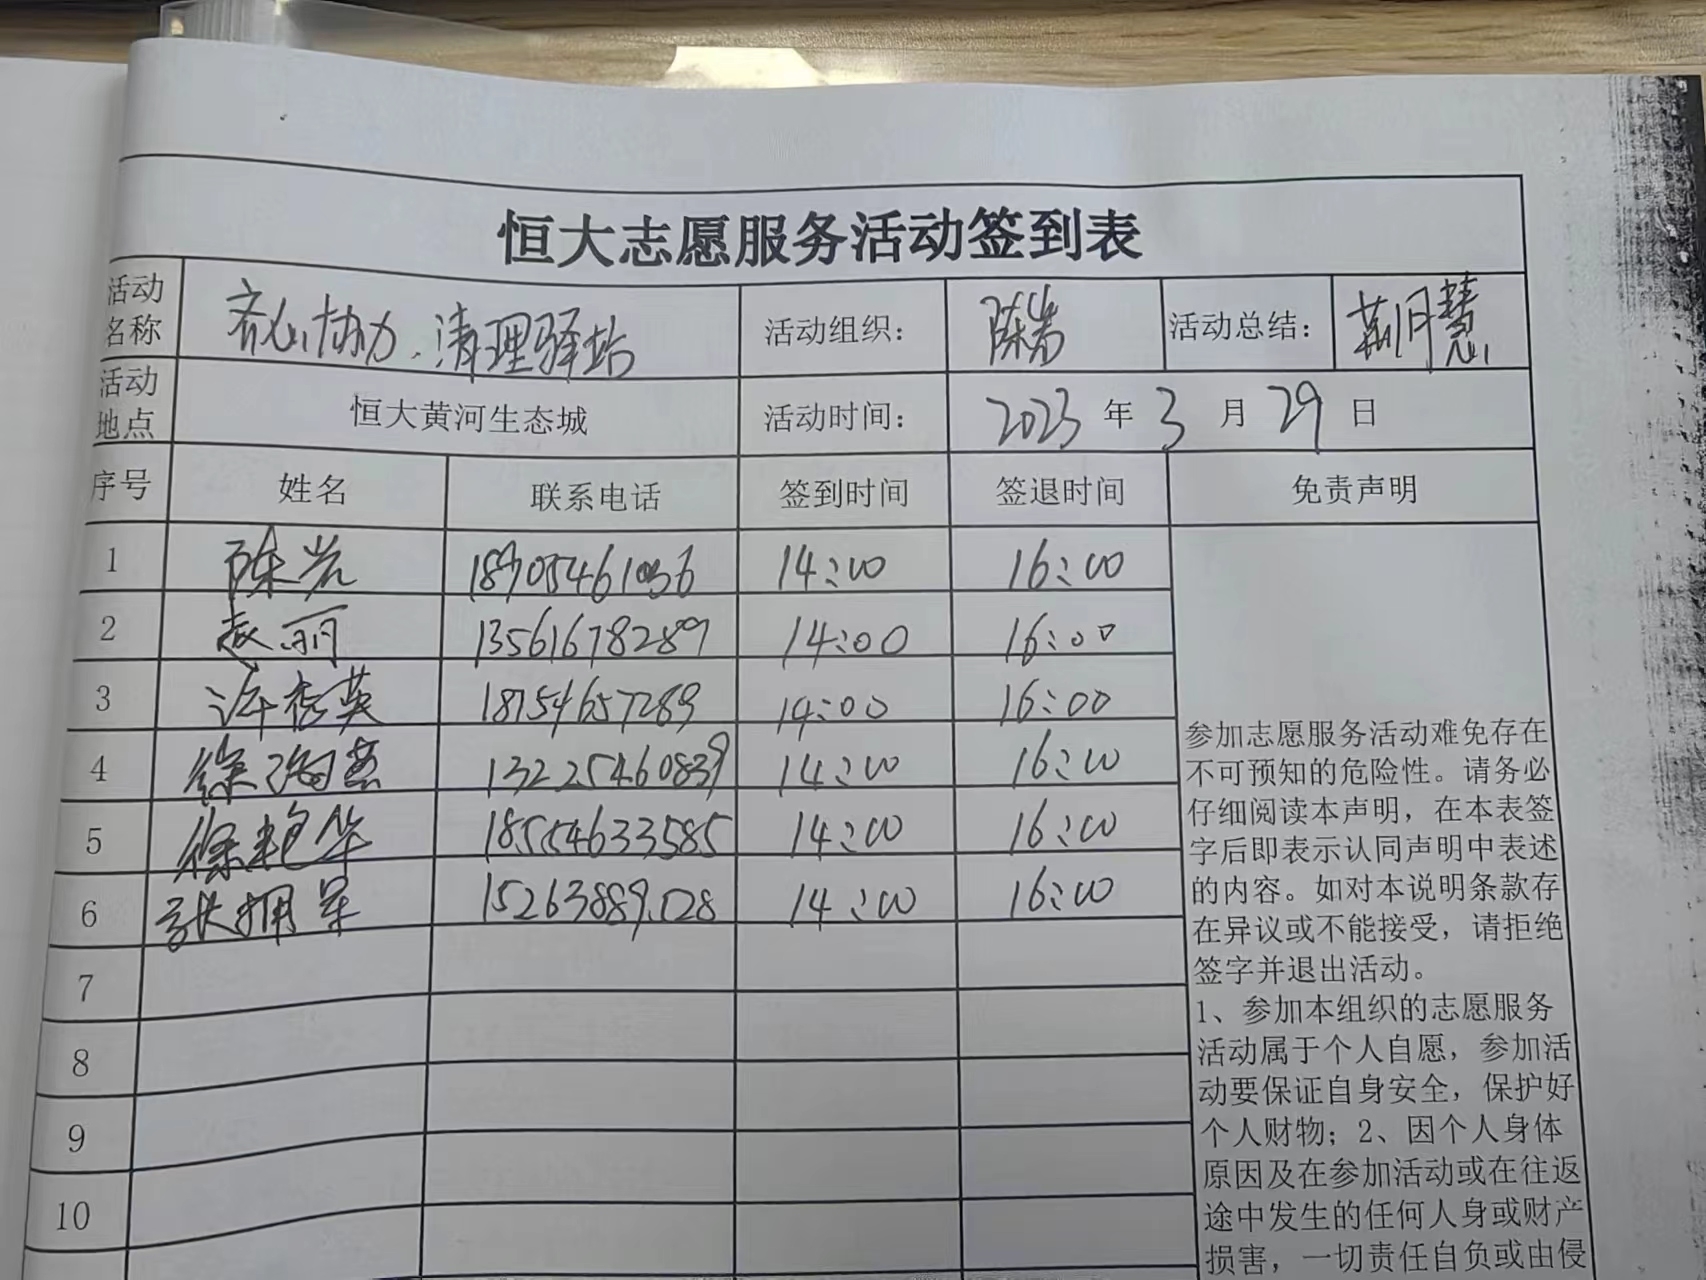 恒大志愿服务活动签到表
活动名称 齐心协力、清理驿站 活动组织： 陈岩 活动总结： 荆月慧
活动地点 恒大黄河生态城 活动时间： 2023 年 3 月 29 日
序号 姓名 联系电话 签到时间 签退时间 免责声明
1 陈岩 18905461036 14:00 16:00
2 赵丽 13561678289 14:00 16:00
3 许秀英 18754657289 14:00 16:00
4 徐海燕 13225460839 14:00 16:00
5 徐艳华 18554633585 14:00 16:00
6 张拥军 15263889128 14:00 16:00
7
8
9
10
参加志愿服务活动难免存在
不可预知的危险性。请务必
仔细阅读本声明，在本表签
字后即表示认同声明中表述
的内容。如对本说明条款存
在异议或不能接受，请拒绝
签字并退出活动。
1、参加本组织的志愿服务
活动属于个人自愿，参加活
动要保证自身安全，保护好
个人财物；2、因个人身体
原因及在参加活动或在往返
途中发生的任何人身或财产
损害，一切责任自负或由侵